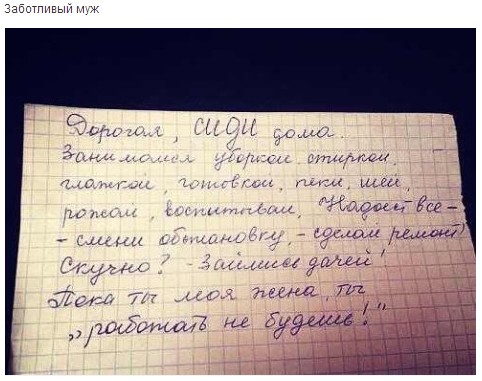 Заботливый муж
Дорогая, СИДИ дома.
Занимайся уборкой, стиркой,
глажкой, готовкой, пеки, шей,
рожай, воспитывай, Надоест все-
- смени обстановку, - сделай ремонт!
Скучно? - Займись дачей!
Пока ты моя жена, ты
„работать не будешь!"